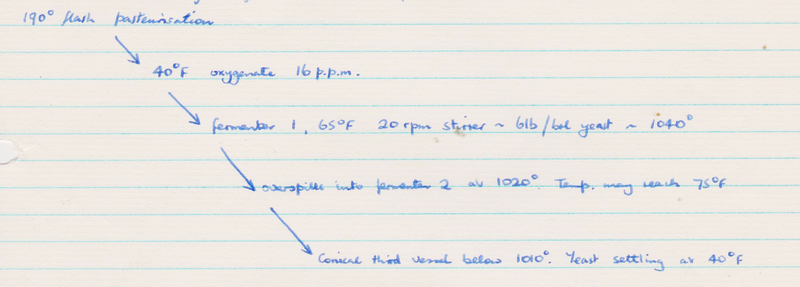 190° flash pasteurisation
40°F oxygenate 16 p.p.m.
fermenter 1, 65°F 20 rpm stirrer ~ 6lb/brl yeast ~ 1040°
overspills into fermenter 2 at 1020°. Temp. may reach 75°F
Conical third vessel below 1010°. Yeast settling at 40°F